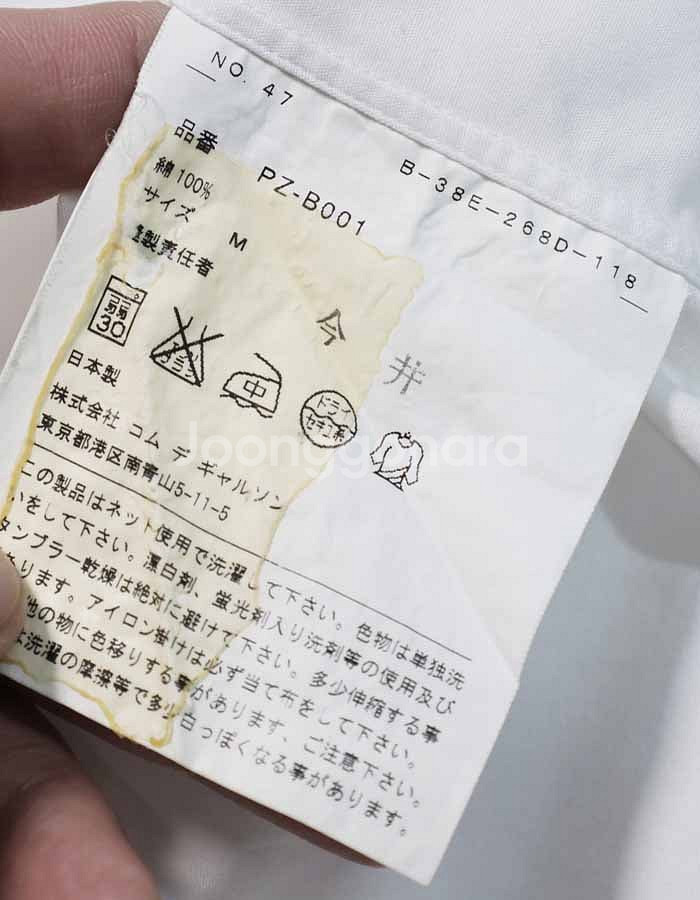 NO. 47
B-38E-268D-118
品番 PZ-B001
綿 100%
サイズ M
製責任者 今井
弱
30
エンソ
サラシ
中
ドライ
セキユ系
日本製
株式会社 コム デ ギャルソン
東京都港区南青山5-11-5
この製品はネット使用で洗濯して下さい。色物は単独洗
いをして下さい。漂白剤、蛍光剤入り洗剤等の使用及び
タンブラー乾燥は絶対に避けて下さい。多少伸縮する事
ります。アイロン掛けは必ず当て布をして下さい。
他の物に色移りする事があります、ご注意下さい。
洗濯の摩擦等で多少白っぽくなる事があります。
Joonggonara